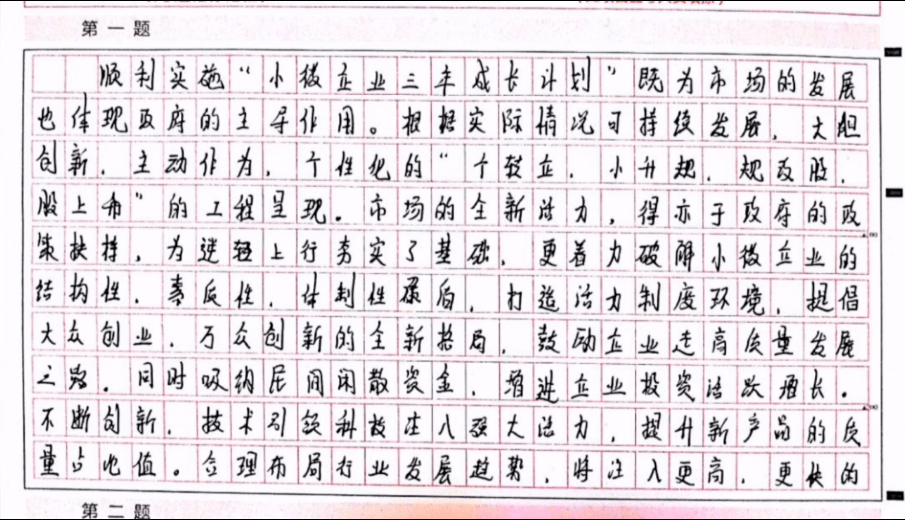 第一题
顺利实施“小微企业三年成长计划”既为市场的发展
也体现政府的主导作用。根据实际情况可持续发展，大胆
创新，主动作为，个性化的“个转企，小升规，规改股，
股上市”的工程呈现。市场的全新活力，得亦于政府的政
策扶持，为逆轻上行夯实了基础，更着力破解小微企业的
结构性，素质性，体制性矛盾，打造活力制度环境，提倡
大众创业，万众创新的全新格局，鼓励企业走高质量发展
之路，同时吸纳民间闲散资金，增进企业投资活跃增长。
不断创新，技术引领科技注入强大活力，提升新产品的质
量占比值。合理布局行业发展趋势，将注入更高，更快的
第二题